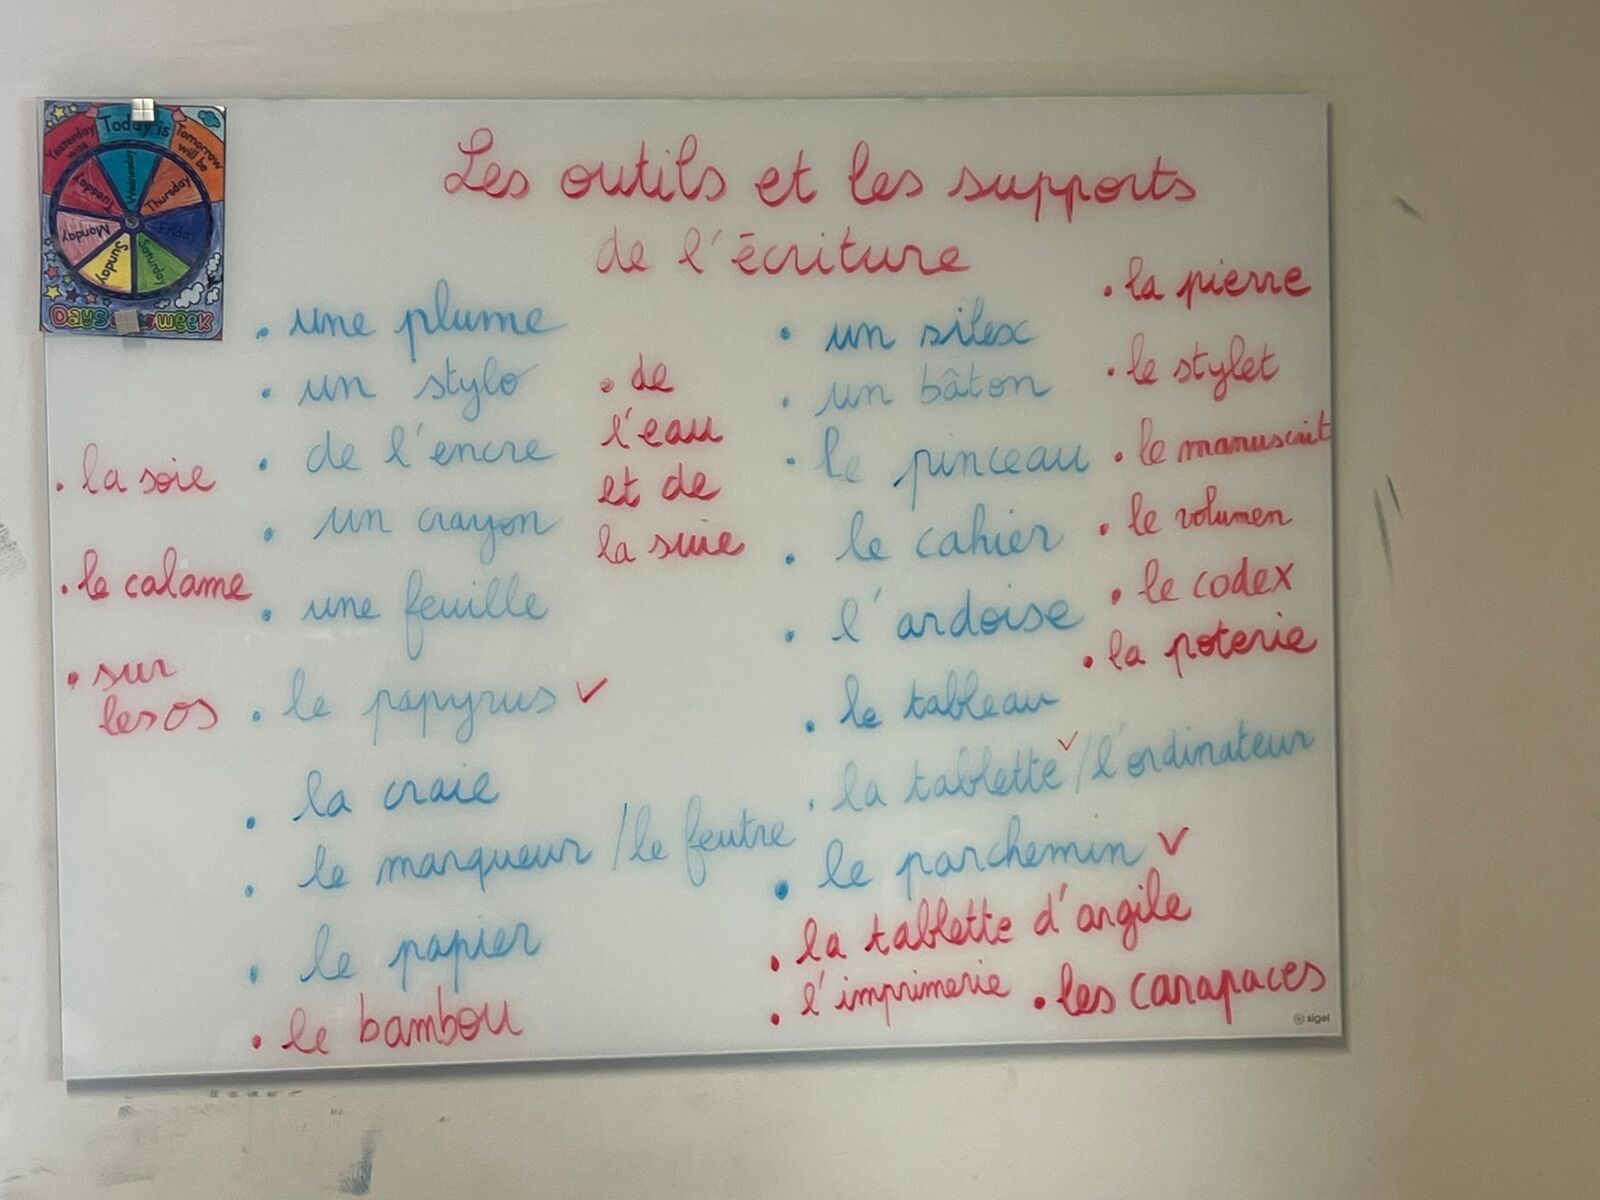 Yesterday was
Today is
Tomorrow will be
Tuesday
Wednesday
Thursday
Monday
Friday
Sunday
Saturday
Days week
Les outils et les supports
de l'écriture
• une plume
• un stylo
• de l'encre
• un crayon
• une feuille
• le papyrus ✓
• la craie
• le marqueur / le feutre
• le papier
• le bambou
• la soie
• le calame
• sur
les os
• de
l'eau
et de
la suie
• un silex
• un bâton
• le pinceau
• le cahier
• l'ardoise
• le tableau
• la tablette ✓ / l'ordinateur
• le parchemin ✓
• la tablette d'argile
• l'imprimerie
• les carapaces
• la pierre
• le stylet
• le manuscrit
• le volumen
• le codex
• la poterie
sigel